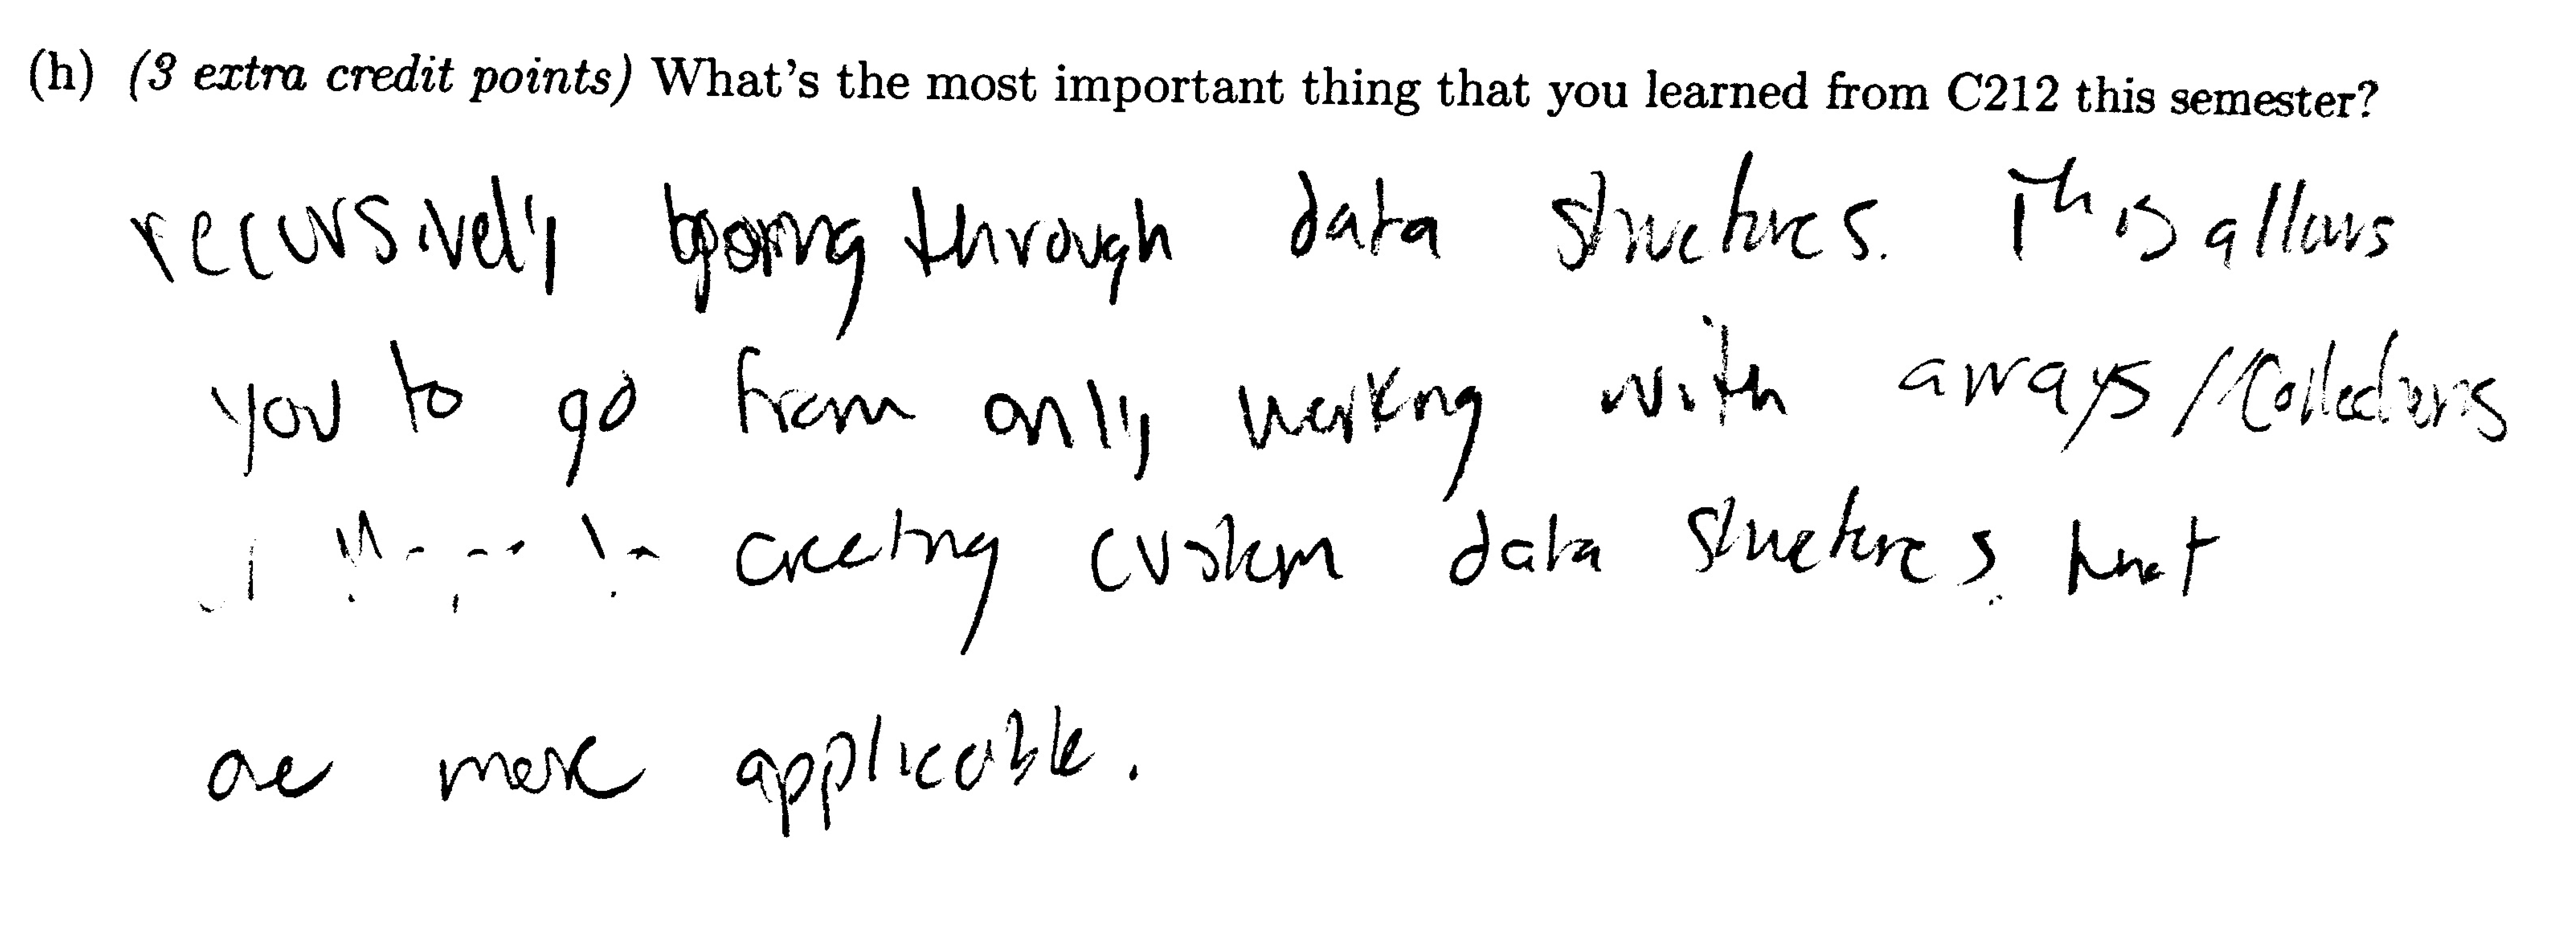 (h) (3 extra credit points) What's the most important thing that you learned from C212 this semester?
recursively going through data structures. This allows
you to go from only working with arrays/Collections
creating custom data structures that
are more applicable.